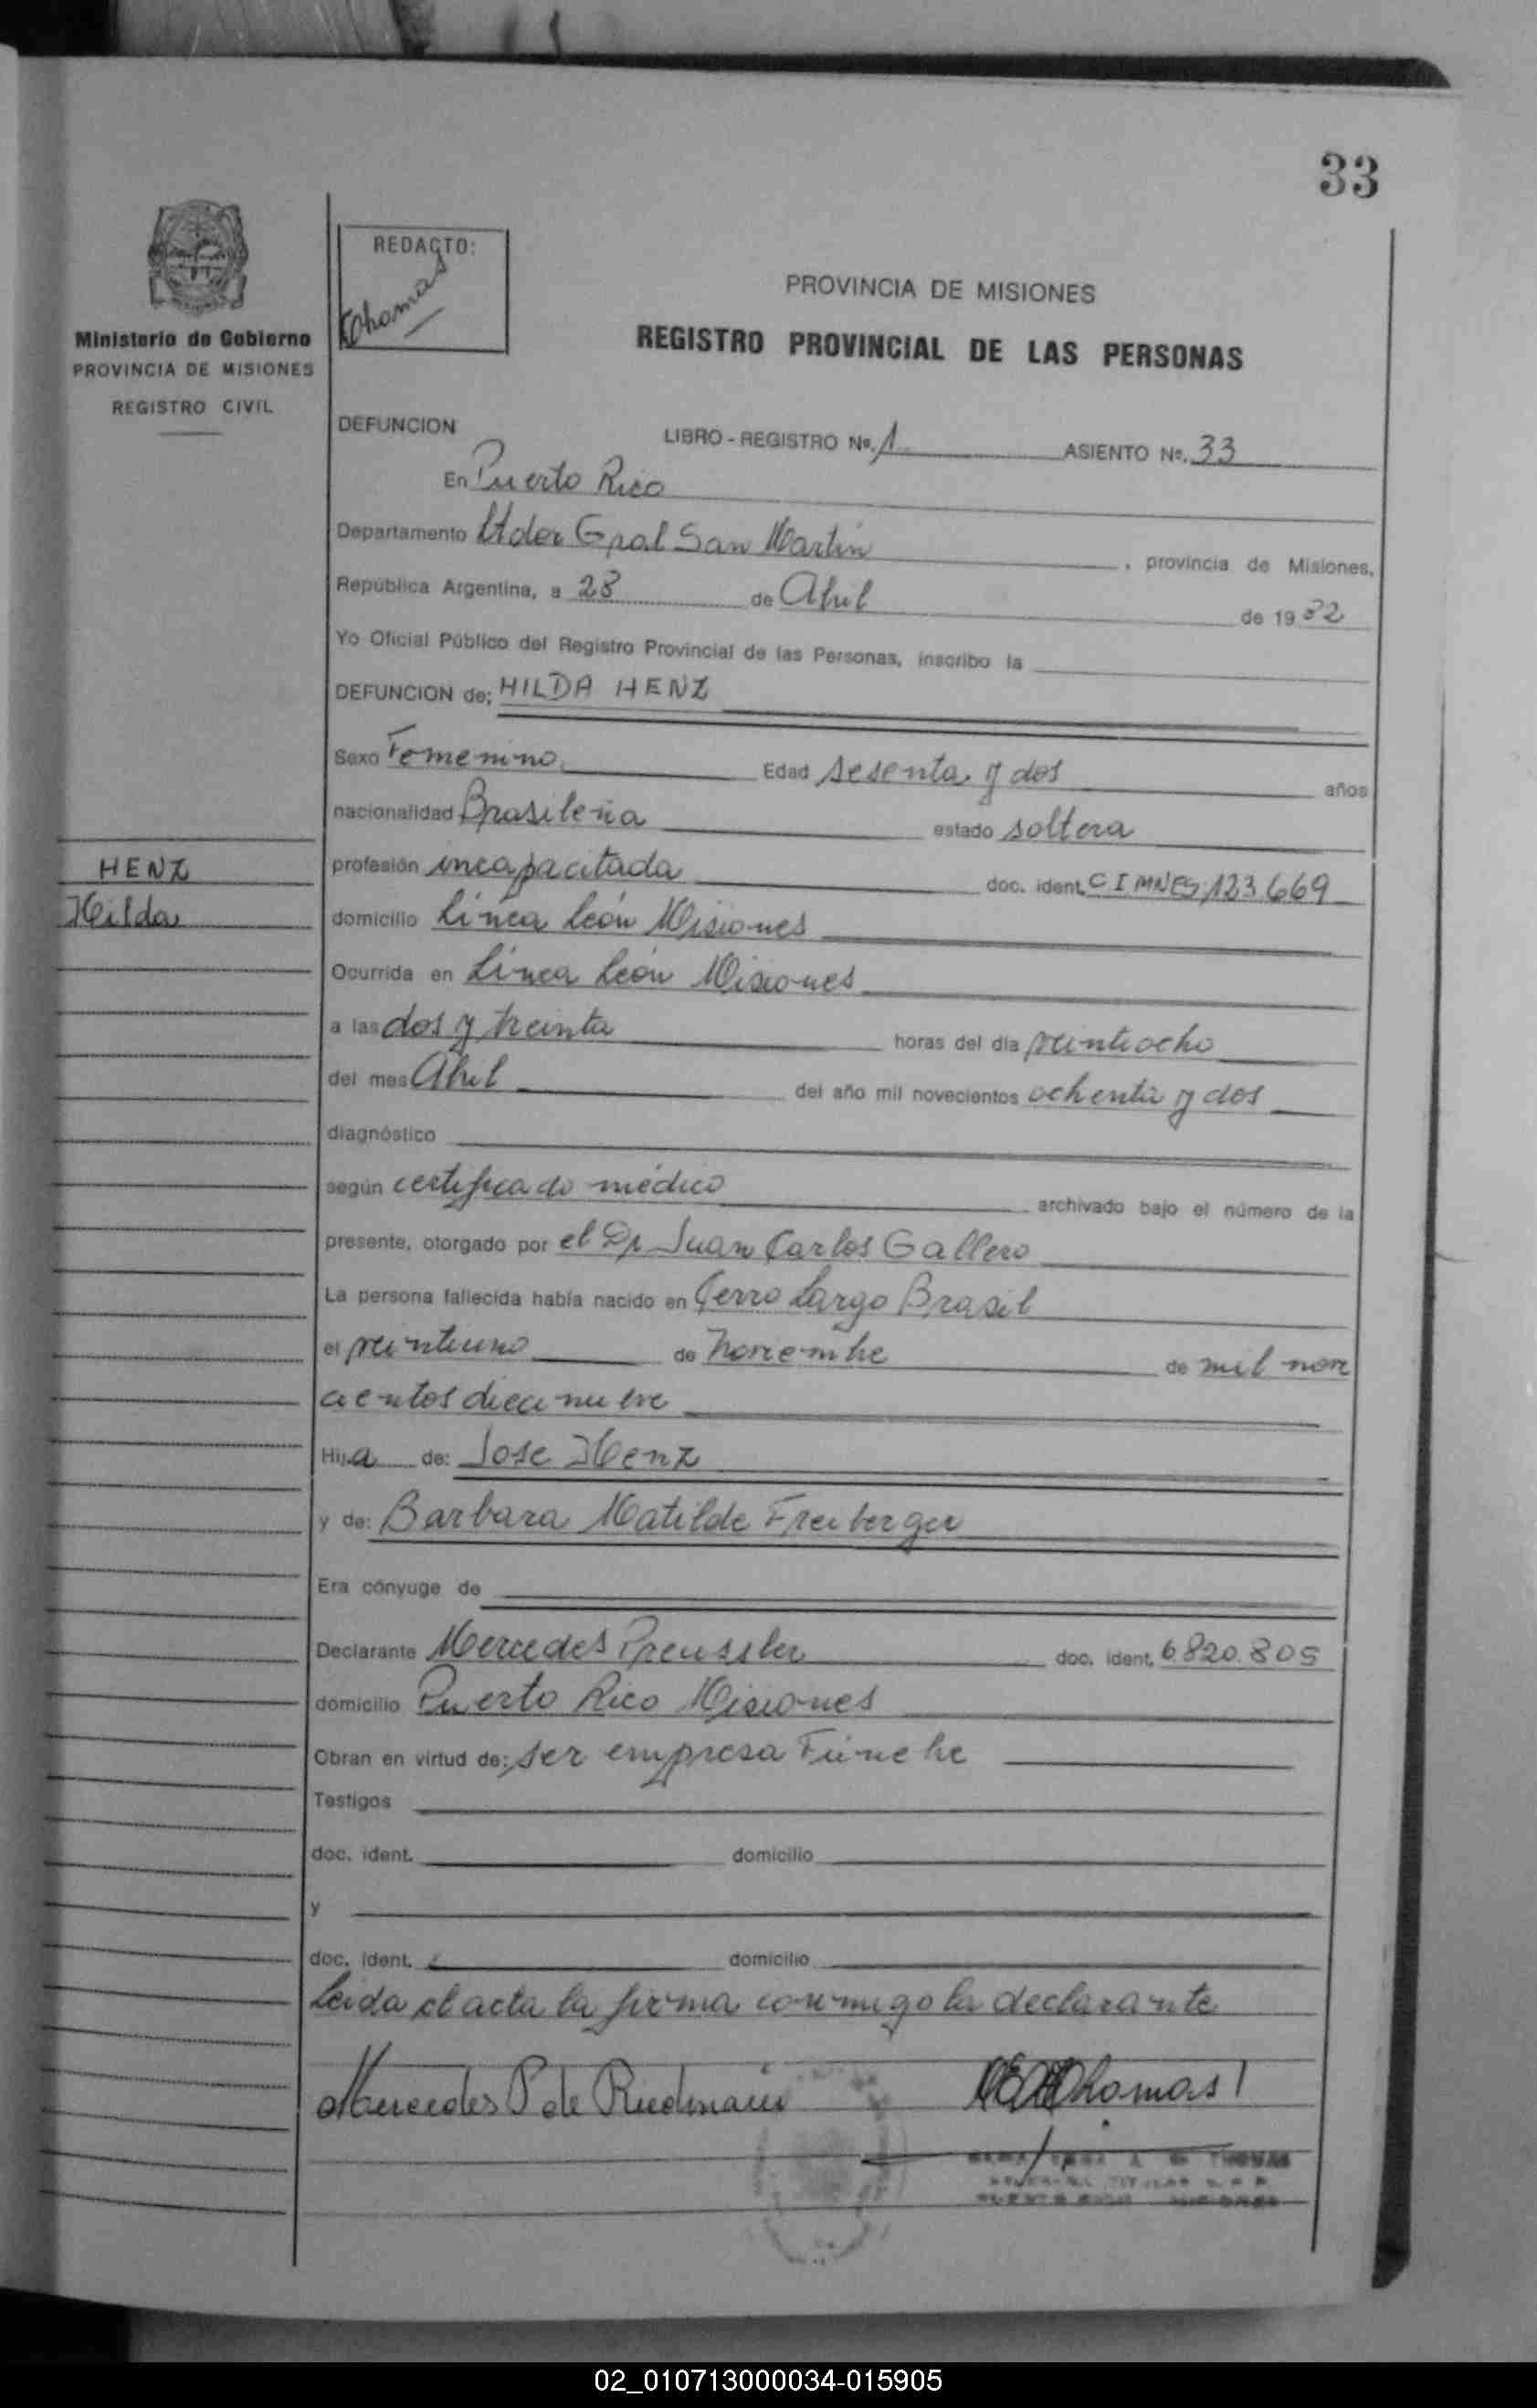 33
REDACTO:
Thomas
Ministerio de Gobierno
PROVINCIA DE MISIONES
REGISTRO CIVIL
PROVINCIA DE MISIONES
REGISTRO PROVINCIAL DE LAS PERSONAS
DEFUNCION LIBRO - REGISTRO Nº. 1 ASIENTO Nº. 33
En Puerto Rico
Departamento Ltdor Gral San Martín, provincia de Misiones,
República Argentina, a 28 de Abril de 1982
Yo Oficial Público del Registro Provincial de las Personas, inscribo la
DEFUNCION de; HILDA HENZ
Sexo Femenino Edad sesenta y dos años
nacionalidad Brasileña estado soltera
HENZ
Hilda
profesión incapacitada doc. ident. C I MNES; 123.669
domicilio Línea León Misiones
Ocurrida en Línea León Misiones
a las dos y treinta horas del día veintiocho
del mes Abril del año mil novecientos ochenta y dos
diagnóstico
según certificado médico archivado bajo el número de la
presente, otorgado por el Dr Juan Carlos Gallero
La persona fallecida había nacido en Cerro Largo Brasil
el veintiuno de noviembre de mil nove
cientos diecinueve
Hija de: Jose Henz
y de: Barbara Matilde Freiberger
Era cónyuge de
Declarante Mercedes Preussler doc. ident. 6.820.805
domicilio Puerto Rico Misiones
Obran en virtud de: ser empresa Fúnebre
Testigos
doc. ident. domicilio
y
doc. ident. domicilio
Leida el acta la firma conmigo la declarante
Mercedes P de Riedmaier Thomas
THOMAS
PUERTO RICO MISIONES
02_010713000034-015905